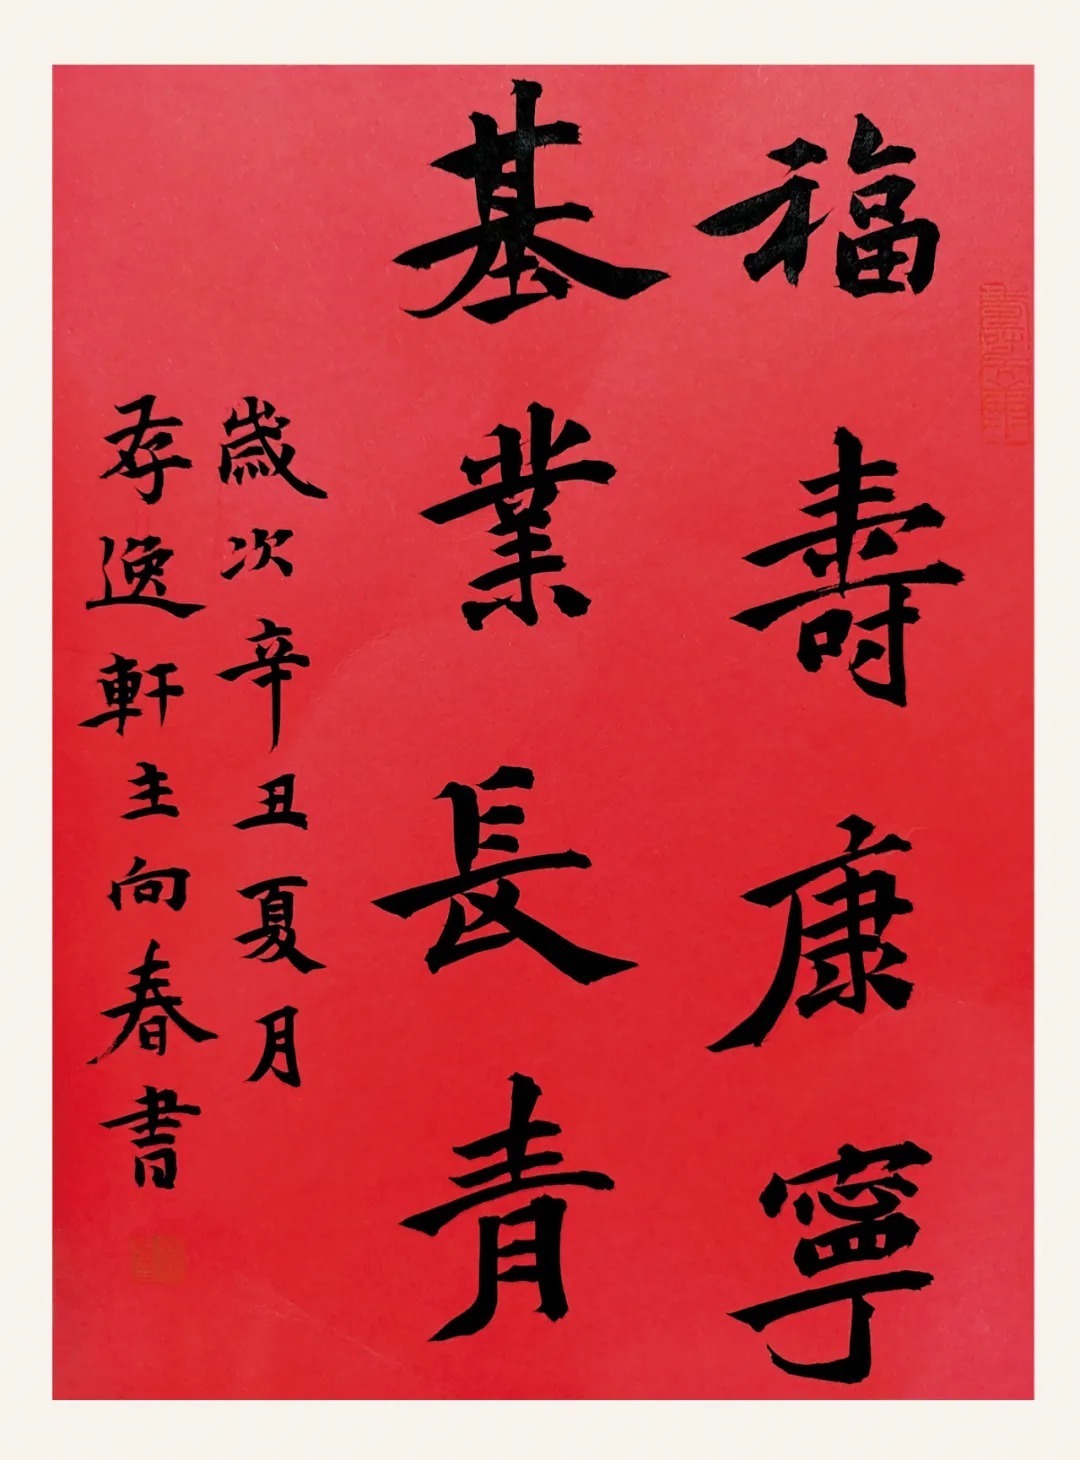 福壽康寧
基業長青
歲次辛丑夏月
存逸軒主向春書